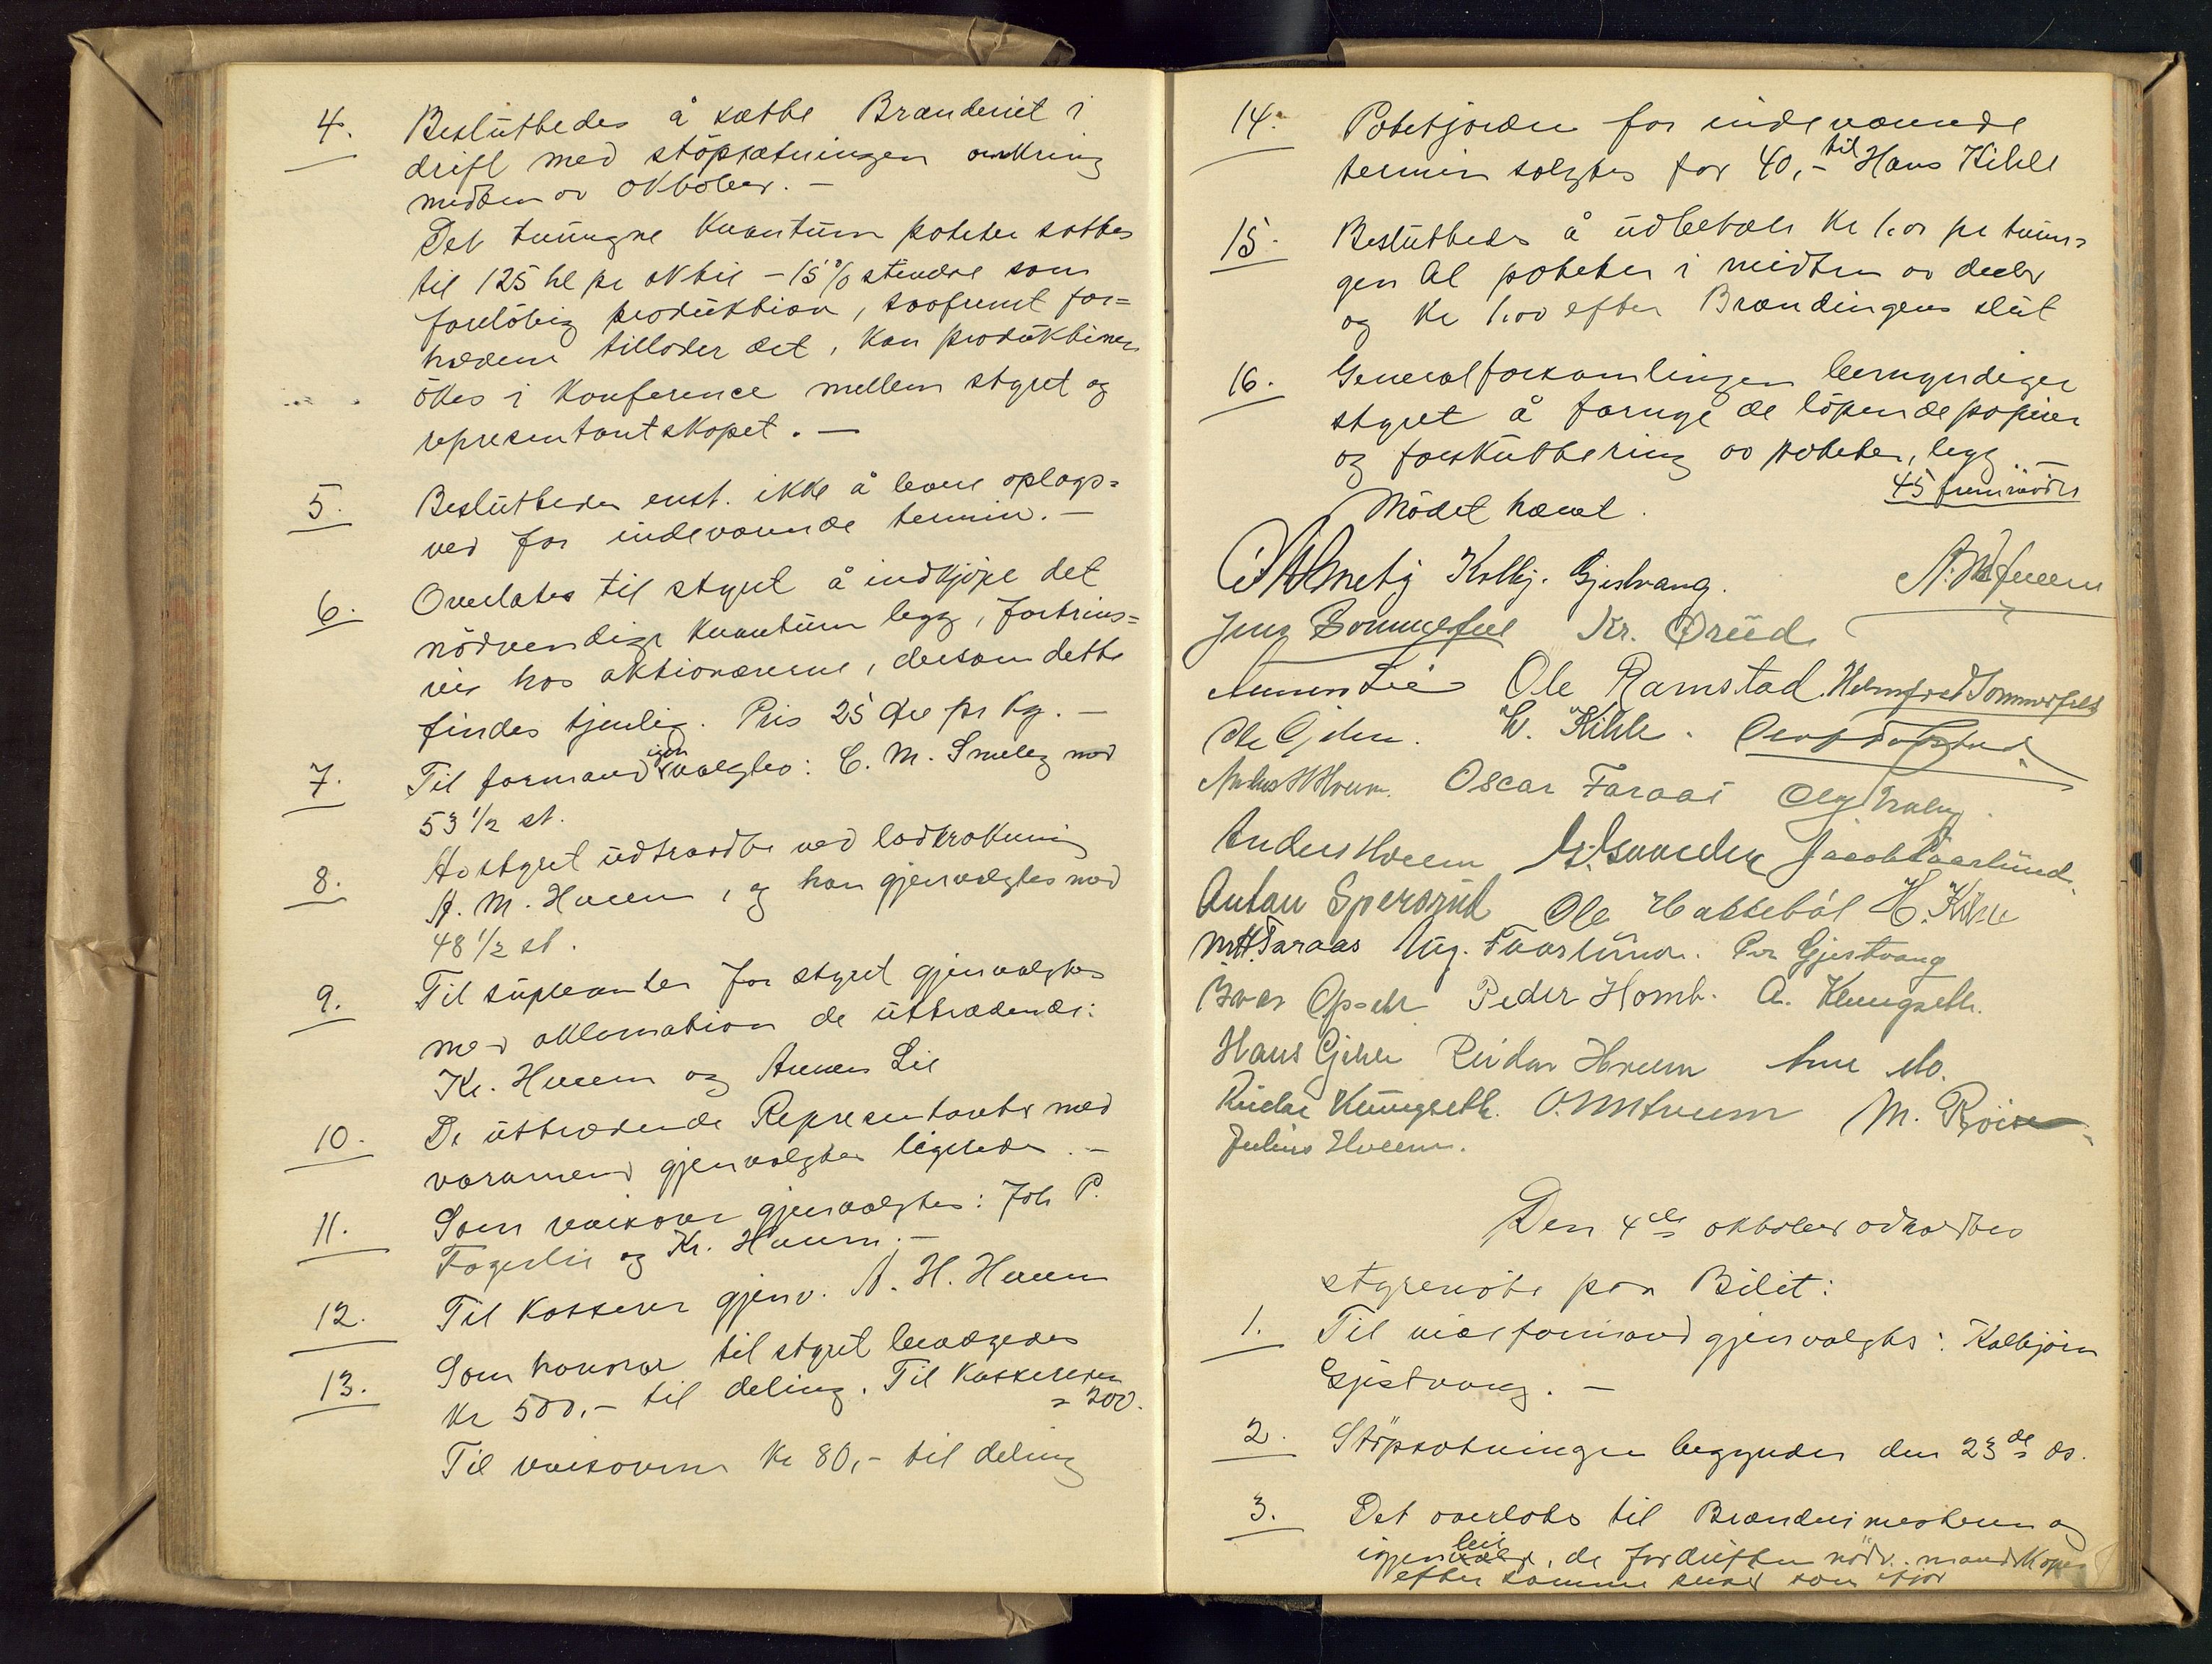 4. Besluttedes å sætte Brænderiet i
drift med støpsætningen omkring
midten av oktober. —
Det tvungne kvantum poteter sattes
til 125 hl pr aktie – 15% stivelse som
foreløbig produktion, saafremt for=
holdene tillader det, kan produktionen
økes i konference mellem styret og
representantskapet. —
5. Besluttedes enst. ikke å levere oplags=
ved for indeværende termin. —
6. Overlates til styret å indkjøpe det
nødvendige kvantum bygg, fortrins=
vis hos aktionærerne, dersom dette
findes tjenlig. Pris 25 Øre pr kg. —
7. Til formand igjen valgtes: C. M. Smeby med
53 1/2 st.
8. Av styret uttraadte ved lodtrækning
A. M. Hveem, og han gjenvalgtes med
48 1/2 st.
9. Til supleanter for styret gjenvalgtes
med aklamation de uttrædende:
Kr. Hveem og Amun Lie
10. De uttrædende Representanter med
varamend gjenvalgtes ligeledes. —
11. Som revisorer gjenvalgtes: Joh P.
Fagerlie og Kr. Hveem. —
12. Til Kasserer gjenv. A. H. Hveem
13. Som honorar til styret bevilgedes
Kr 500,- til deling. Til Kassereren
" 200.
Til revisorerne Kr 80,- til deling
14. Potetjorden for indeværende
termin solgtes for 40,- til Hans Kihle
15. Besluttedes å udbetale Kr 1.00 pr tvun=
gen hl poteter i midten av decbr
og Kr 1.00 efter Brændingens slut
16. Generalforsamlingen bemyndiger
styret å fornye de løpende papirer
og forskuttering av poteter, bygg. —
Mødet hævet. 45 fremmødte
C M Smeby Kolbj. Gjestvang. A. M Hveem
Jens Sommerfelt Kr. Ørud
Amun Lie Ole Ramstad. Helmfred Sommerfelt
Ole Gjehen. W. Kihle.
Oscar Faraas
Anders Hveem Jacob Paarlund.
Anton Spersrud Ole Hakkebøl H. Kihle
M. H. Faraas Aug. Faarlund. Per Gjestvang
Iver Opsahl Peder Homb. A. Klungseth.
Hans Gjehen Reidar Hveem Mo.
Reidar Klungseth. O. M Hveem M. Røise
Julius Hveem.
Den 4de oktober avholdtes
styremøte paa Bilit:
1. Til viseformand gjenvalgtes: Kolbjørn
Gjestvang. —
2. Støpsætningen begynder den 23de ds.
3. Det overlates til Brænderimesteren og
igjen leie, de for driften nødv. mandskaper
efter samme som ifjor